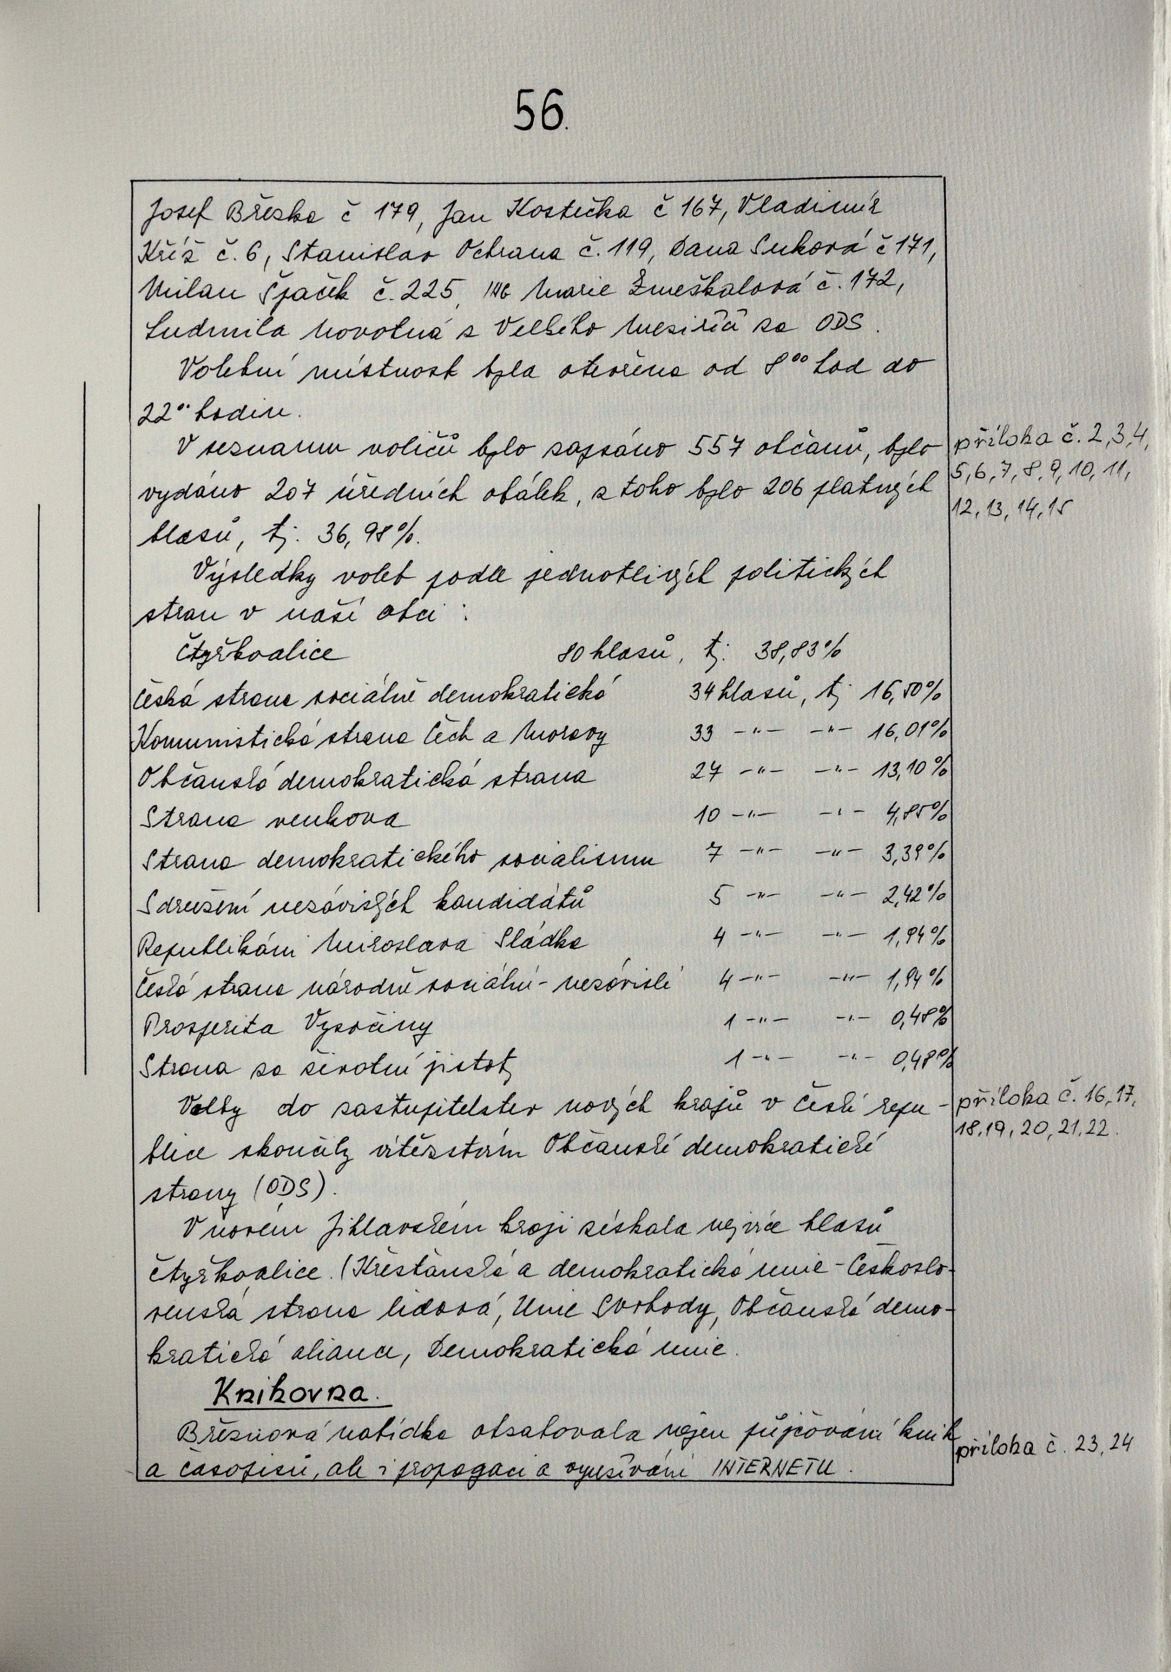 56.
Josef Březka č 179, Jan Kostečka č 167, Vladimír
Kříž č. 6, Stanislav Ochrana č. 119, Dana Suková č 171,
Milan Špaček č. 225, ING Marie Zmeškalová č. 172,
Ludmila Novotná z Velkého Meziříčí za ODS.
Volební místnost byla otevřena od 8⁰⁰ hod do
22⁰⁰ hodin.
V seznamu voličů bylo zapsáno 557 občanů, bylo
příloha č. 2, 3, 4,
vydáno 207 úředních obálek, z toho bylo 206 platných
5, 6, 7, 8, 9, 10, 11,
12, 13, 14, 15
hlasů, tj. 36,98%.
Výsledky voleb podle jednotlivých politických
stran v naší obci :
Čtyřkoalice 80 hlasů, tj. 38,83%
Česká strana sociálně demokratická 34 hlasů, tj 16,50%
Komunistická strana Čech a Moravy 33 -"- -"- 16,01%
Občanská demokratická strana 27 -"- -"- 13,10%
Strana venkova 10 -"- -"- 4,85%
Strana demokratického socialismu 7 -"- -"- 3,39%
Sdružení nezávislých kandidátů 5 -"- -"- 2,42%
Republikáni Miroslava Sládka 4 -"- -"- 1,94%
Česká strana národně sociální - nezávislí 4 -"- -"- 1,94%
Prosperita Vysočiny 1 -"- -"- 0,48%
Strana za životní jistoty 1 -"- -"- 0,48%
Volby do zastupitelstev nových krajů v České repu-
příloha č. 16, 17,
18, 19, 20, 21, 22.
blice skončily vítězstvím Občanské demokratické
strany (ODS).
V novém Jihlavském kraji získala nejvíce hlasů
čtyřkoalice. (Křesťanská a demokratická unie - Českoslo-
venská strana lidová, Unie Svobody, Občanská demo-
kratická aliance, Demokratická unie.
Knihovna.
Březnová nabídka obsahovala nejen půjčování knih
příloha č. 23, 24
a časopisů, ale i propagaci a využívání INTERNETU.